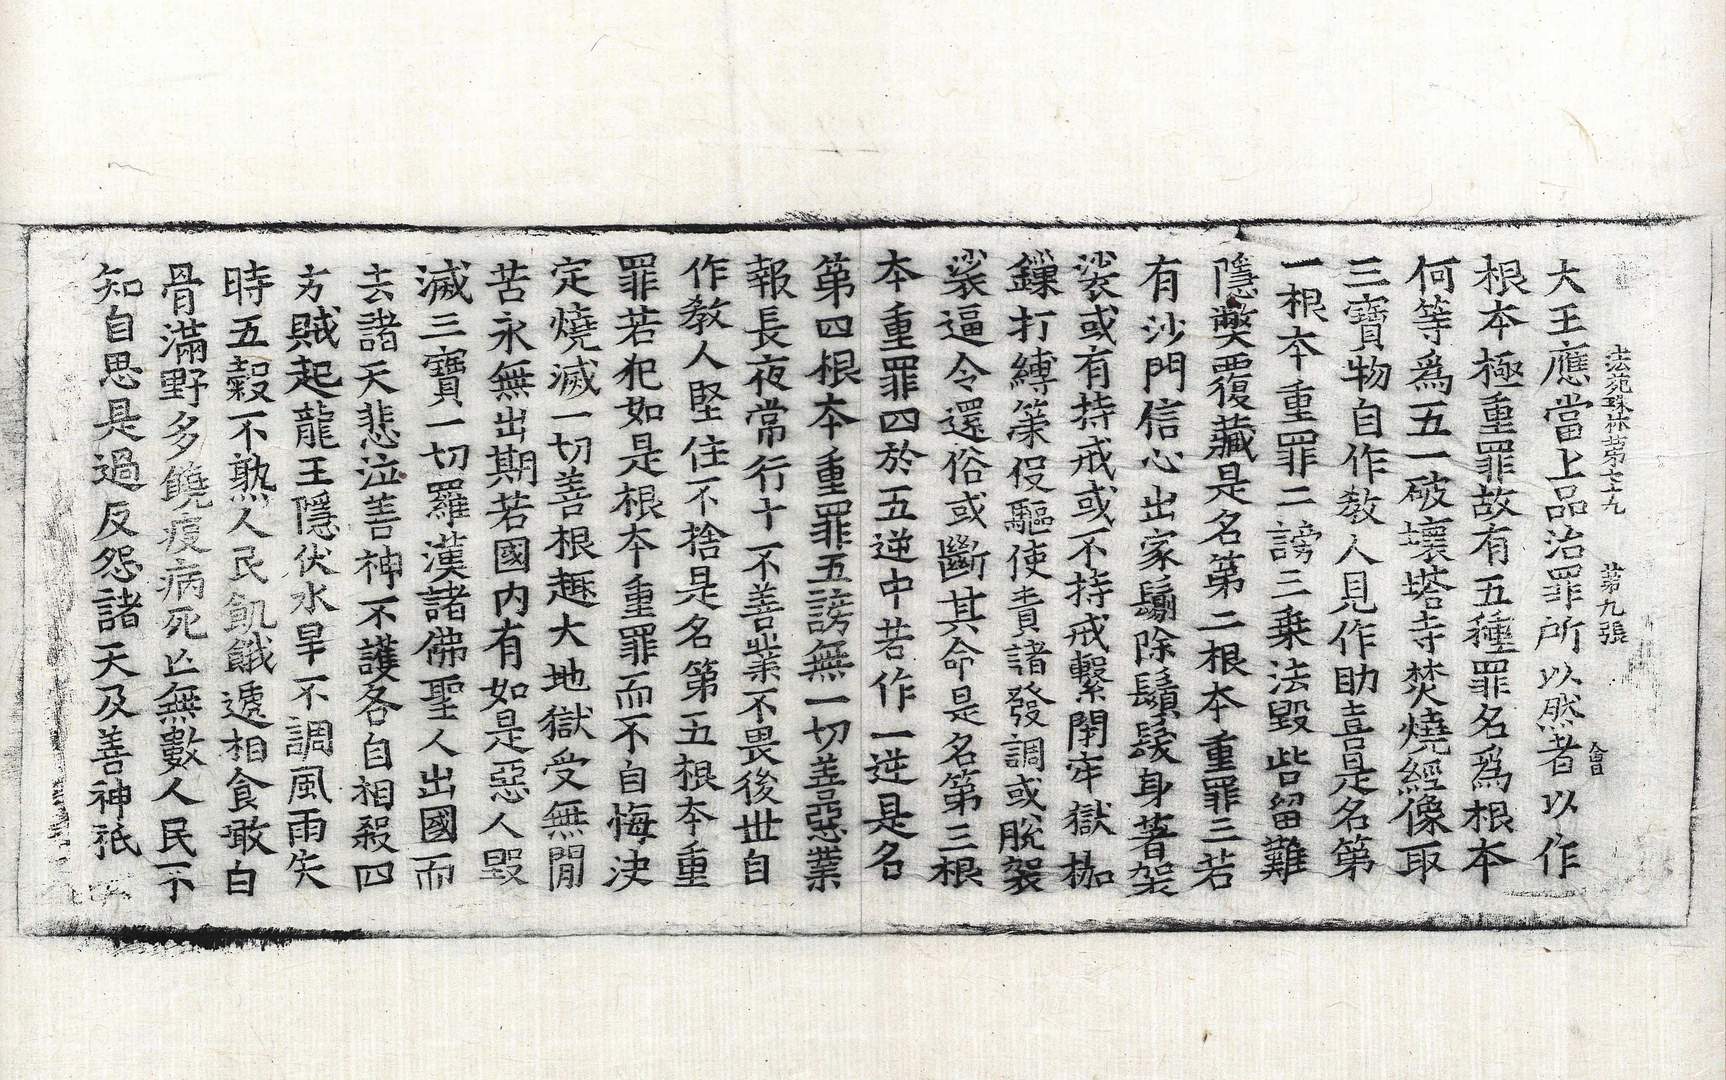 法苑珠林第七十九 第九張 會
大王應當上品治罪所以然者以作
根本極重罪故有五種罪名爲根本
何等爲五一破壞塔寺焚燒經像取
三寶物自作教人見作助喜是名第
一根本重罪二謗三乘法毀呰留難
隱弊覆藏是名第二根本重罪三若
有沙門信心出家鬀除鬚髮身著袈
裟或有持戒或不持戒繫閉牢獄枷
鏁打縛策役驅使責諸發調或脫袈
裟逼令還俗或斷其命是名第三根
本重罪四於五逆中若作一逆是名
第四根本重罪五謗無一切善惡業
報長夜常行十不善業不畏後世自
作教人堅住不捨是名第五根本重
罪若犯如是根本重罪而不自悔決
定燒滅一切善根趣大地獄受無閒
苦永無出期若國內有如是惡人毀
滅三寶一切羅漢諸佛聖人出國而
去諸天悲泣善神不護各自相殺四
方賊起龍王隱伏水旱不調風雨失
時五穀不熟人民飢餓遞相食噉白
骨滿野多饒疫病死亡無數人民不
知自思是過反怨諸天及善神祇